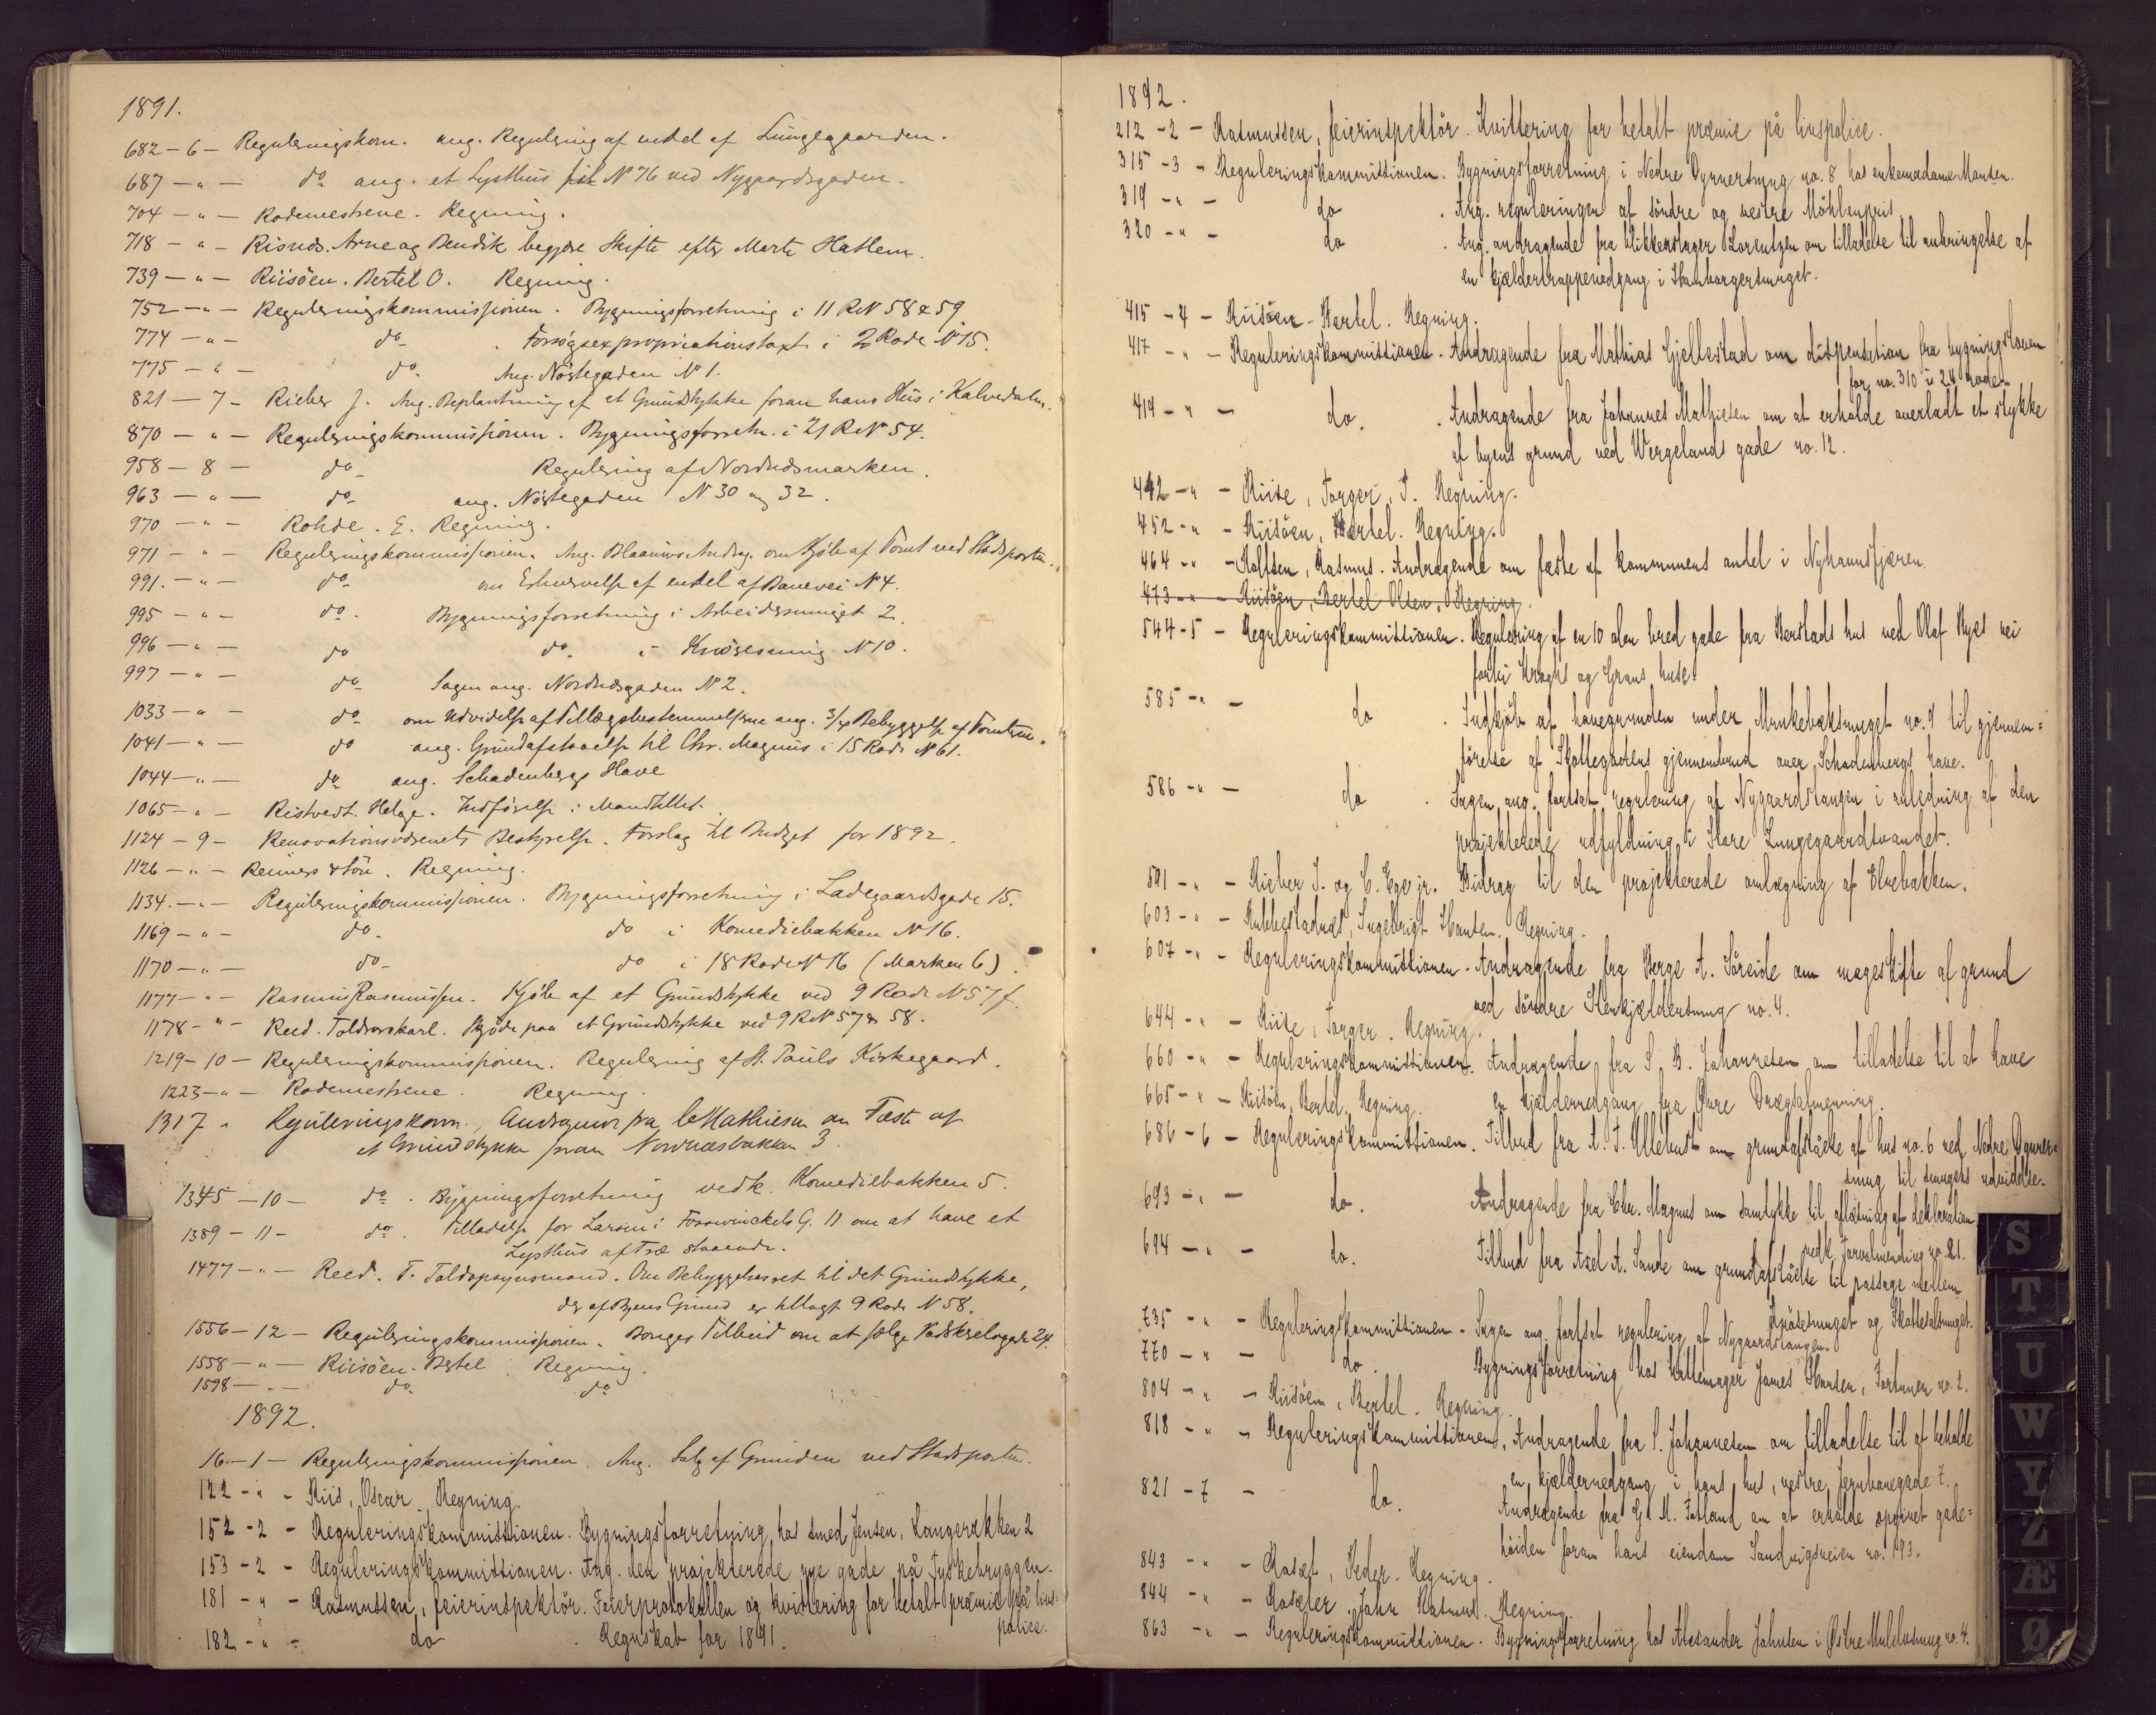 1891.
682 - 6 - Reguleringskom. ang. Regulering af endel af Lungegaarden.
687 - " - do ang. et Lysthus til No 76 ved Nygaardsgaden.
704 - " - Rodemestrene. Regning.
718 - " - Risnes. Arne og Bendik begjære Skifte efter Marte Hatlem.
739 - " - Riisöen. Bertel O. Regning.
752 - " - Reguleringskommissionen. Bygningsforretning i 11 R No 58 & 59
774 - " - do. Forsögsexpropriationstaxt i 2 Rode No 15.
775 - " - do. Ang. Nöstegaden No 1.
821 - 7 - Rieber J. Ang. Beplantning af et Grundstykke foran hans Hus i Kalvedalen.
870 - " - Reguleringskommissionen. Bygningsforretn. i 21 R No 54.
958 - 8 - do Regulering af Nordnæsmarken.
963 - " - do ang. Nöstegaden No 30 og 32.
970 - " - Rohde. E. Regning.
971 - " - Reguleringskommissionen. Ang. Blaauws Andrag. om Kjöb af Tomt ved Stadsporten.
991. - " - do om Erhvervelse af endel af Banevei No 4.
995 - " - do. Bygningsforretning i Arbeidersmuget 2.
996 - " - do do. i Knösesmug No 10.
997 - " - do Sagen ang. Nordnæsgaden No 2.
1033 - " - do om Udvidelse af Tillægsbestemmelserne ang. 3/4 Bebyggelse af Tomten.
1041 - " - do ang. Grundafstaaelse til Chr. Magnus i 15 Rode No 61.
1044 - " - do ang. Schadenbergs Have
1065 - " - Ristvedt. Helge. Indförelse i Mandtallet.
1124 - 9 - Renovationsvæsenets Bestyrelse. Forslag til Budget for 1892.
1126 - " - Reimers & Sön. Regning.
1134. - " - Reguleringskommissionen. Bygningsforretning i Ladegaardsgade 15.
1169 - " - do. do i Komediebakken No 16.
1170 - " - do - do i 18 Rode No 16 (Marken 6).
1177 - " - Rasmus Rasmussen. Kjöb af et Grundstykke ved 9 Rode No 57 f.
1178 - " - Reed. Toldrorskarl. Skjöde paa et Grundstykke ved 9 R No 57 & 58.
1219 - 10 - Reguleringskommissionen. Regulering af St. Pauls Kirkegaard.
1223 - " - Rodemestrene. Regning.
1317 " Reguleringskom., Andragende fra C. Mathiesen om Fæste af
et Grundstykke foran Nordnæsbakken 3.
1345 - 10 - do. Bygningsforretning vedk. Komediebakken 5.
1389 - 11 - do. Tilladelse for Larsen i Fosswinckels G. 11 om at have et
Lysthus af Træ staaende.
1477 - " - Reed. T. Toldopsynsmand. Om Bebyggelsesret til det Grundstykke,
der af Byens Grund er tillagt 9 Rode No 58.
1556 - 12 - Reguleringskommissionen. Bonges Tilbud om at sælge Vaskrelvgade 24.
1558 - " - Riisöen. Bertel Regning.
1598 - " - do do
1892.
16 - 1 - Reguleringskommissionen. Ang. Salg af Grunden ved Stadsporten.
122 - " - Riis, Oscar. Regning.
152 - 2 - Reguleringskommissionen. Bygningsforretning hos smed Jensen, Langerækken 2
153 - 2 - Reguleringskommissionen. Ang. den projekterede nye gade på Tyskebryggen.
181 - " - Rasmussen, feierinspektör. Feierprotokollen og kvittering for betalt præmie på livs-
police.
182 - " - do Regnskab for 1891.
1892.
212 - 2 - Rasmussen, feierinspektör. Kvittering for betalt præmie på livspolice.
315 - 3 - Reguleringskommissionen. Bygningsforretning i Nedre Dynnersmug no. 8 hos enkemadame Monsen.
319 - " - do. Ang. reguleringen af söndre og vestre Möhlenpris
320 - " - do. Ang. andragende fra blikkenslager Lorentzen om tilladelse til anbringelse af
en kjældertrappenedgang i Hamborgersmuget.
415 - 4 - Riisöen, Bertel. Regning.
417 - " - Reguleringskommissionen. Andragende fra Mathias Gjellestad om dispensation fra bygningsloven
for no. 310 i 24 rode.
419 - " - do. Andragende fra Johannes Mathiesen om at erholde overladt et stykke
af byens grund ved Wergelands gade no. 12.
442 - " - Riise, Torger, T. Regning.
452 - " - Riisöen, Bertel. Regning.
464 - " - Rolfsen, Rasmus. Andragende om fæste af kommunens andel i Nyhavnsfjæren.
473 - " - Riisöen, Bertel Olsen, Regning.
544 - 5 - Reguleringskommissionen. Regulering af en 10 alen bred gade fra Berstads hus ved Olaf Ryes vei
forbi Kroghs og Grans huse.
585 - " - do. Indkjöb af havegrunden under Munkebæksmuget no. 9 til gjennem-
förelse af Skottegadens gjennembrud over Schadenbergs have.
586 - " - do. Sagen ang. fortsat regulering af Nygaardstangen i anledning af den
projekterede udfyldning i Store Lungegaardsvandet.
591 - " - Rieber J. og C. Ege jr. Bidrag til den projekterede omlægning af Elvebakken.
603 - " - Rubbestadnæs, Ingebrigt Hansen. Regning.
607 - " - Reguleringskommissionen. Andragende fra Berge A. Söreide om mageskifte af grund
ved söndre Stenkjældersmug no. 4.
644 - " - Riise, Torger. Regning.
660 - " - Reguleringskommissionen. Andragende fra S. B. Johannesen om tilladelse til at have
en kjældernedgang fra Øvre Dragsalmenning.
665 - " - Riisöen, Bertel. Regning.
686 - 6 - Reguleringskommissionen. Tilbud fra A. T. Ullebust om grundafståelse af hus no. 6 ved Nedre Dynner-
smug til smugets udvidelse.
693 - " - do. Andragende fra Chr. Magnus om samtykke til aflæsning af deklaration
vedk. Torvalmending no. 21.
694 - " - do. Tilbud fra Axel A. Sande om grundafståelse til passage mellem
Spödesmuget og Skottesalsmuget.
735 - " - Reguleringskommissionen. Sagen ang. fortsat regulering af Nygaardstangen.
770 - " - do. Bygningsforretning hos hattemager James Hansen, Fortunen no. 2.
804 - " - Riisöen, Bertel. Regning.
818 - " - Reguleringskommissionen. Andragende fra S. Johannesen om tilladelse til at beholde
en kjældernedgang i hans hus, vestre Jernbanegade 7.
821 - 7 - do. Andragende fra G. M. Fatland om at erholde opgivet gade-
höiden foran hans eiendom Sandvigsveien no. 193.
843 - " - Rosæt, Peder. Regning.
844 - " - Rosæter, John Rasmus. Regning.
863 - " - Reguleringskommissionen. Bygningsforretning hos Alexander Johnsen i Østre Mulelvsmug no. 4.
S
T
U
W
Y
Z
Æ
Ø